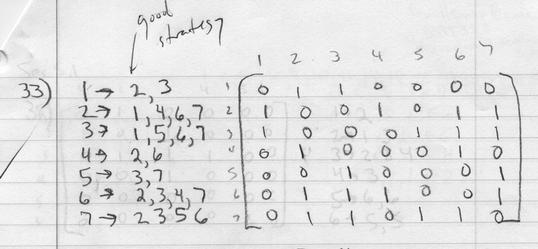 good
strategy
1 2 3 4 5 6 7
33) 1 → 2, 3 1 0 1 1 0 0 0 0
2 → 1, 4, 6, 7 2 1 0 0 1 0 1 1
3 → 1, 5, 6, 7 3 1 0 0 0 1 1 1
4 → 2, 6 4 0 1 0 0 0 1 0
5 → 3, 7 5 0 0 1 0 0 0 1
6 → 2, 3, 4, 7 6 0 1 1 1 0 0 1
7 → 2 3 5 6 7 0 1 1 0 1 1 0